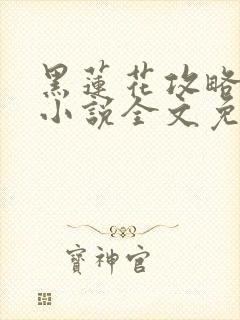 黑蓮花攻略
小說全文免
寶神官